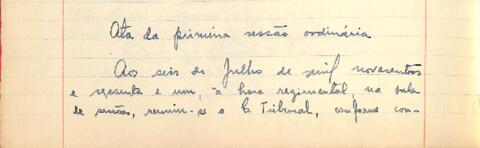 Ata da primeira sessão ordinária
Aos seis de Julho de mil novecentos
e sessenta e um, à hora regimental, na sala
de sessões, reuniu-se o Tribunal, conforme con-